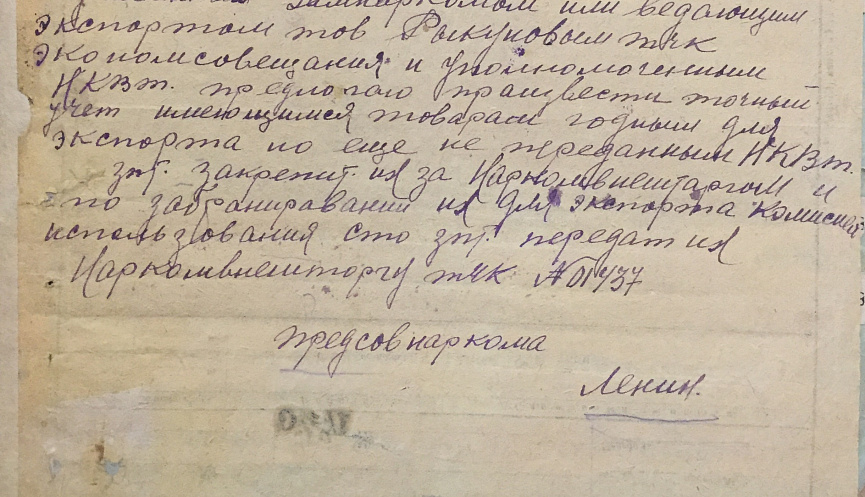 замнаркомом или ведающим
экспортом тов Рыкуновым тчк
экономсовещания и уполномоченным
НКВт. предлогаю праизвести точный
учет имеющимся товарам годным для
экспорта но еще не переданным НКВт.
зпт. закрепит их за Наркомвнештаргом и
по забранировании их для экспорта комисией
использования сто зпт. передат их
Наркомвнешторгу тчк
предсовнаркома
Ленин.